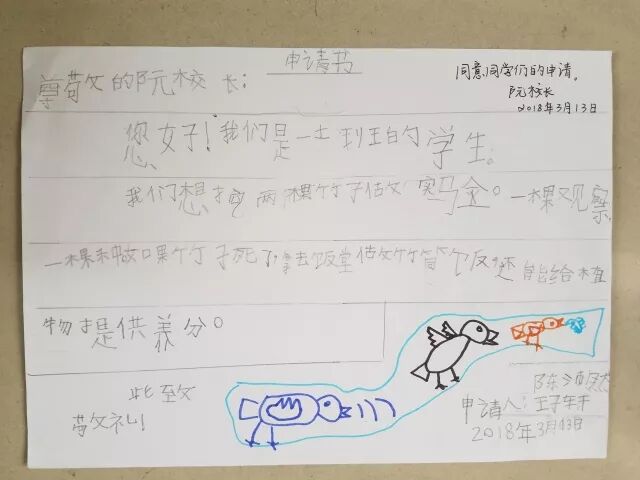 申请书
尊敬的阮校长：
同意同学们的申请。
阮校长
2018年3月13日
您好！我们是一 班的学生。
我们想挖两棵竹子做实验。一棵观察
一棵种如果竹子死了拿去饭堂做竹筒饭还能给植
物提供养分。
此致
敬礼！
陈 然
申请人：王子轩
2018年3月13日